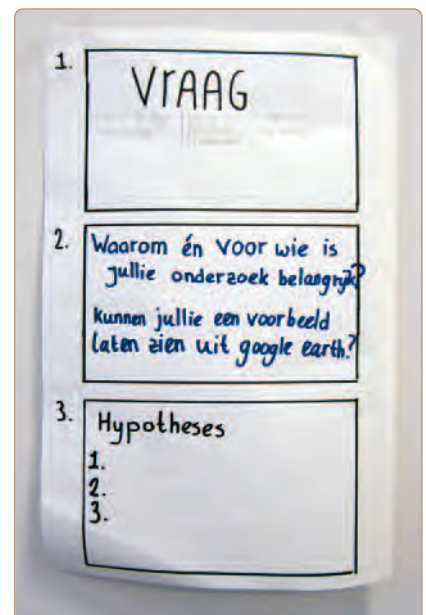 1. VrAAG
2. Waarom én voor wie is
jullie onderzoek belangrijk?
kunnen jullie een voorbeeld
laten zien uit google earth?
3. Hypotheses
1.
2.
3.